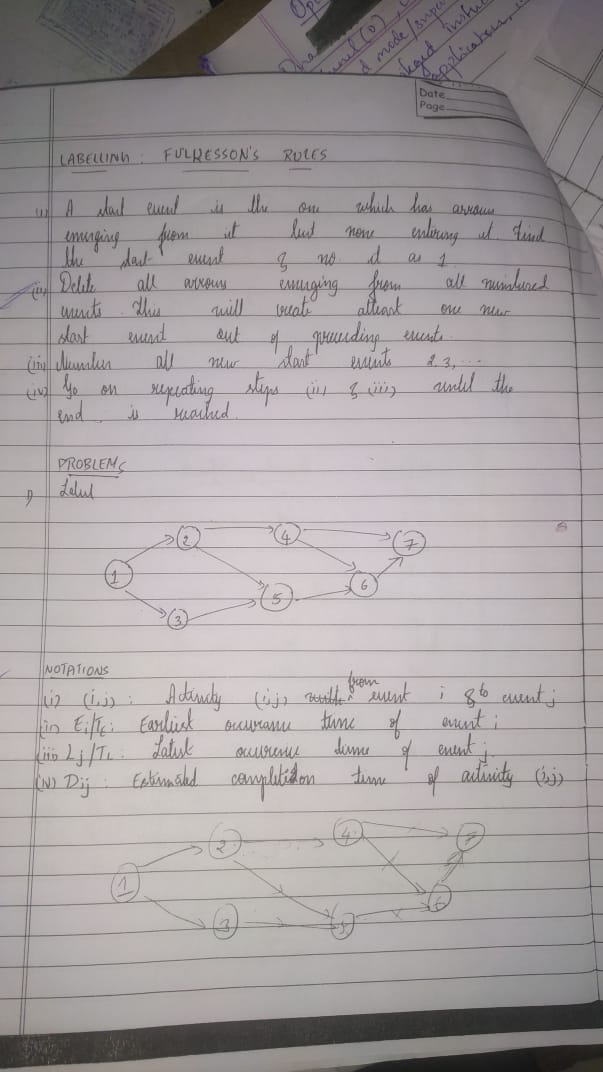 Date
Page
LABELLING : FULKERSSON'S RULES
(i) A start event is the one which has arrows
emerging from it but none entering it. Find
the start event & no. it as 1.
(ii) Delete all arrows emerging from all numbered
events. This will create atleast one new
start event out of preceeding events.
(iii) Number all new start events 2, 3, ...
(iv) Go on repeating steps (ii) & (iii) until the
end is reached.
PROBLEMS
1) Label
1 2 3 4 5 6 7
NOTATIONS
(i) (i,j) : Activity (i,j) from event i & to event j
(ii) Ei/TE : Earliest occurance time of event i
(iii) Lj/TL : Latest occurence time of event j
(iv) Dij : Estimated completion time of activity (i,j)
1 2 3 4 5 6 7